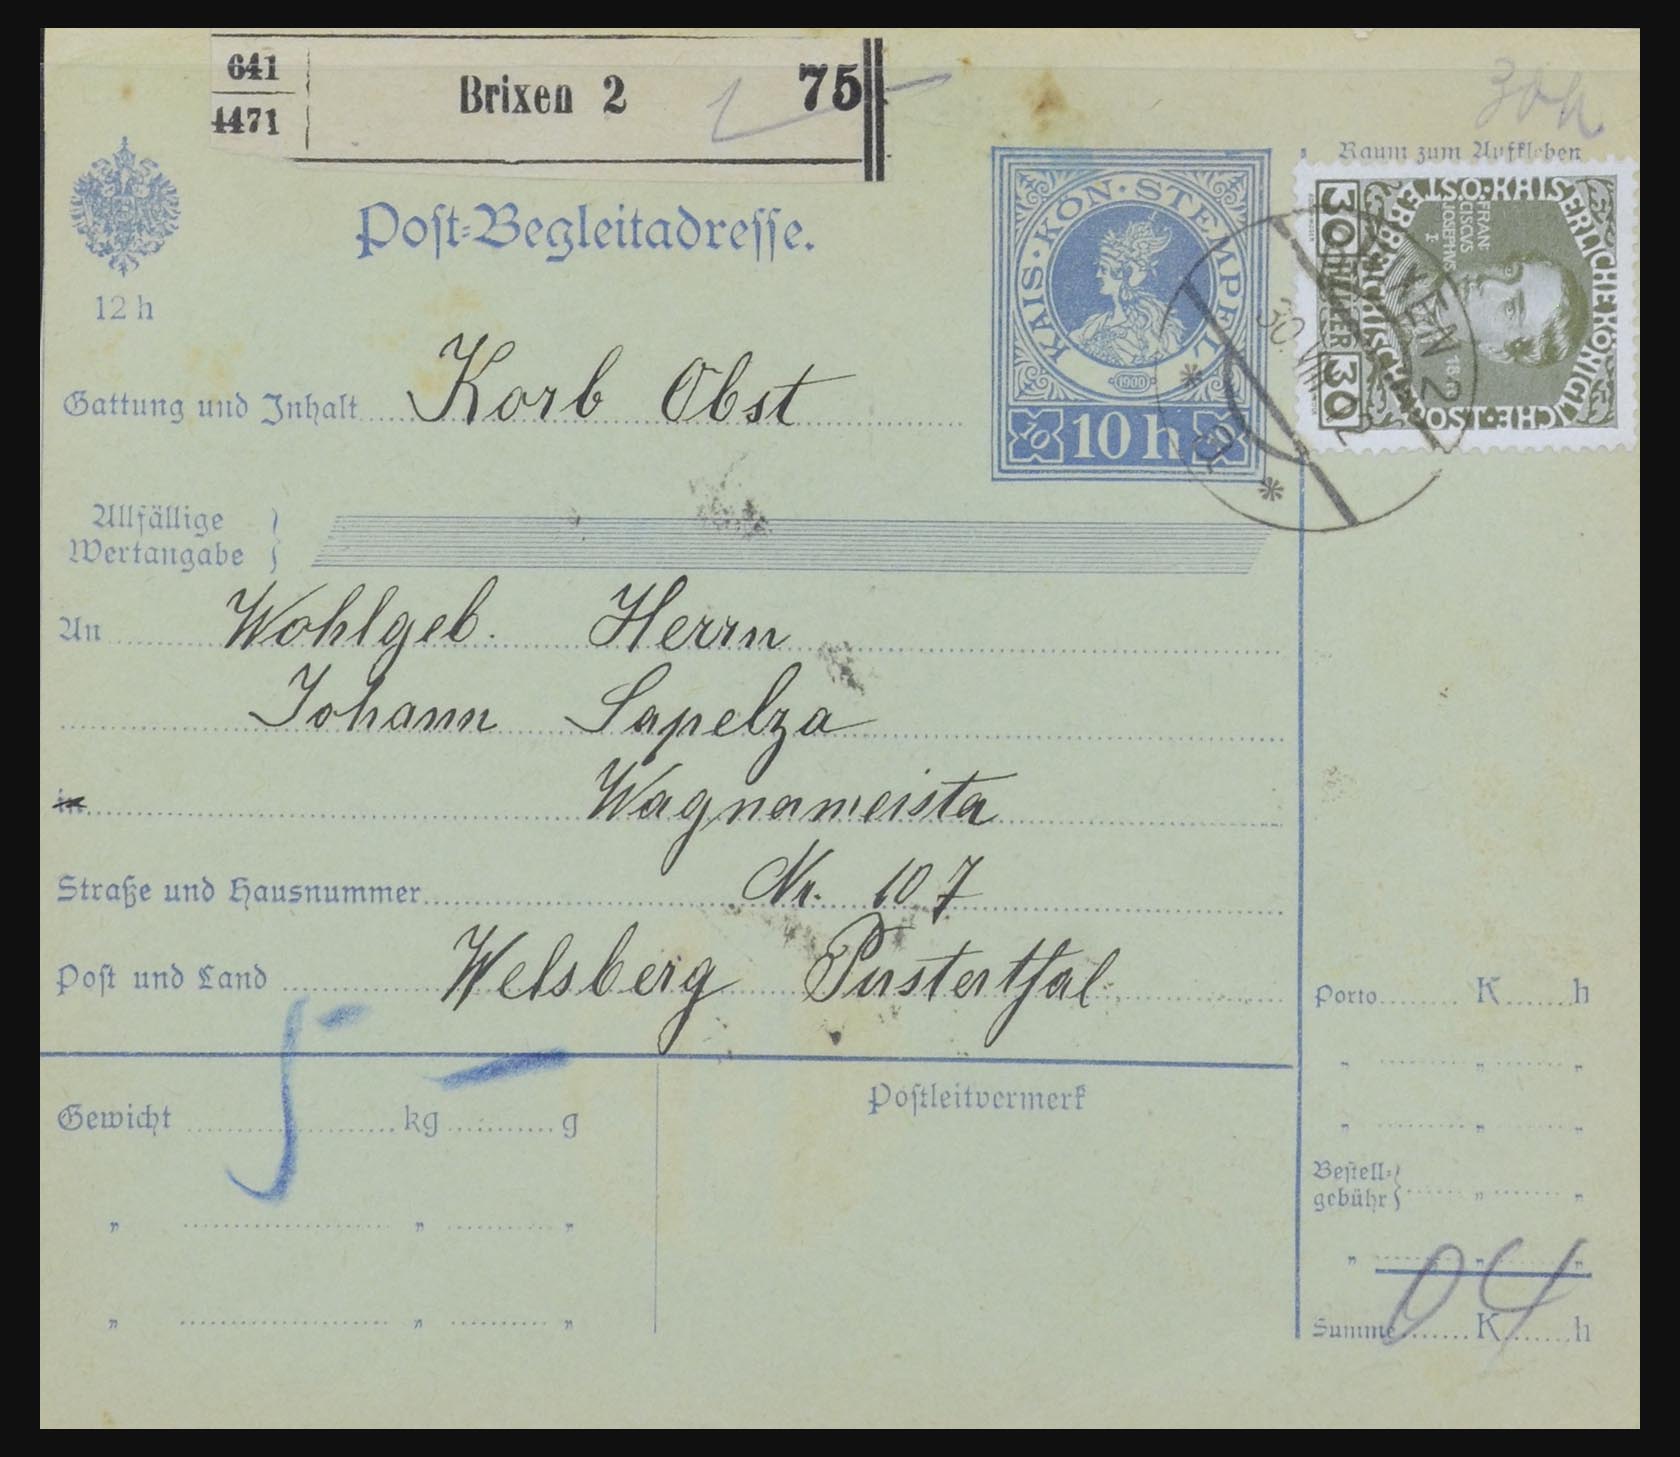 641
4471
Brixen 2
75
30h
Raum zum Aufkleben
Post-Begleitadresse.
12 h
KAIS·KÖN·STEMPEL
1900
10 10 h 10
KAISERLICHE KÖNIGLICHE ÖSTERREICHISCHE POST
FRANCISCVS JOSEPHVS I
30 HELLER 30
Gattung und Inhalt Korb Obst
Allfällige
Wertangabe
An Wohlgeb. Herrn
Johann Sapelza
in Wagnameista
Straße und Hausnummer Nr. 107
Post und Land Welsberg Pusterthal
Porto K h
Gewicht 5 kg — g
Postleitvermerk
Bestell-
gebühr
Summe K h